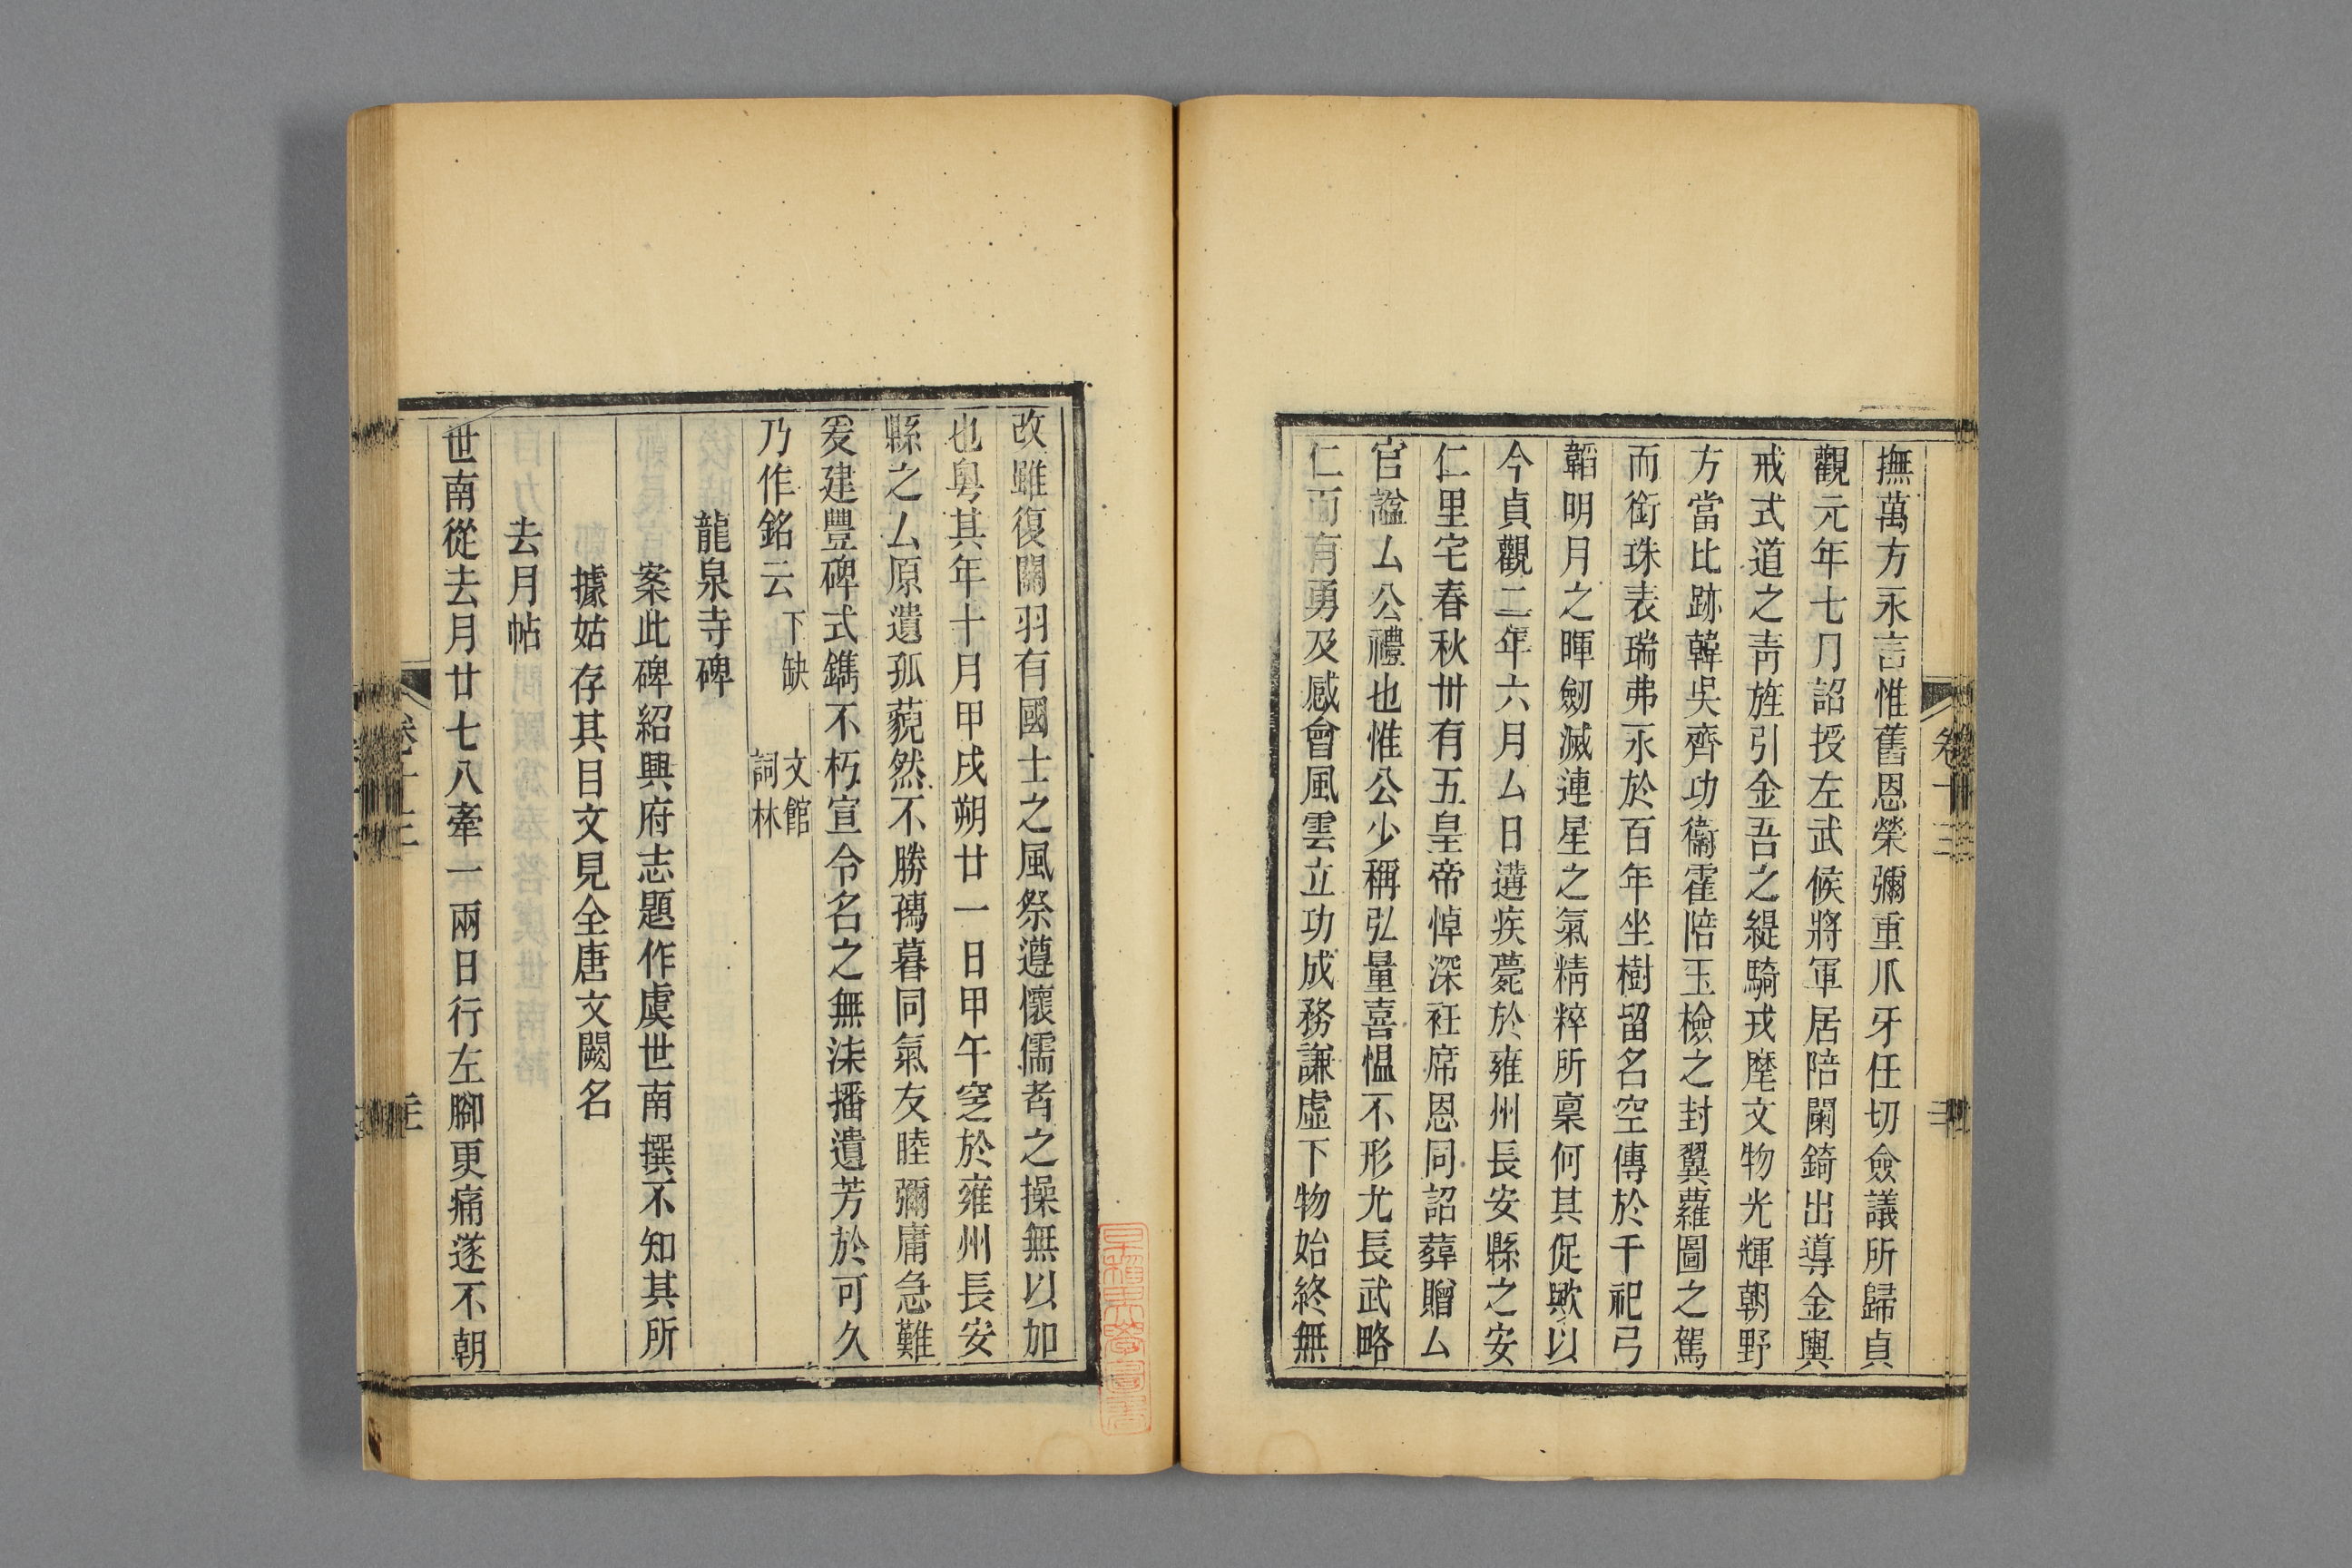 撫萬方永言惟舊恩榮彌重爪牙任切僉議所歸貞
觀元年七月詔授左武候將軍居陪闌錡出導金輿
戒式道之靑旌引金吾之緹騎戎麾文物光輝朝野
方當比跡韓吳齊功衞霍陪玉檢之封翼蘿圖之駕
而銜珠表瑞弗永於百年坐樹留名空傳於千祀弓
韜明月之暉劒滅連星之氣精粹所稟何其促歟以
今貞觀二年六月厶日遘疾薨於雍州長安縣之安
仁里宅春秋卅有五皇帝悼深衽席恩同詔葬贈厶
官謚厶公禮也惟公少稱弘量喜慍不形尤長武略
仁而有勇及感會風雲立功成務謙虛下物始終無
卷十三
改雖復關羽有國士之風祭遵懷儒者之操無以加
也粵其年十月甲戌朔廿一日甲午窆於雍州長安
縣之厶原遺孤藐然不勝孺慕同氣友睦彌庸急難
爰建豐碑式鐫不朽宣令名之無沬播遺芳於可久
乃作銘云下缺 文館詞林
龍泉寺碑
案此碑紹興府志題作虞世南撰不知其所
據姑存其目文見全唐文闕名
去月帖
世南從去月廿七八牽一兩日行左腳更痛遂不朝
卷十三